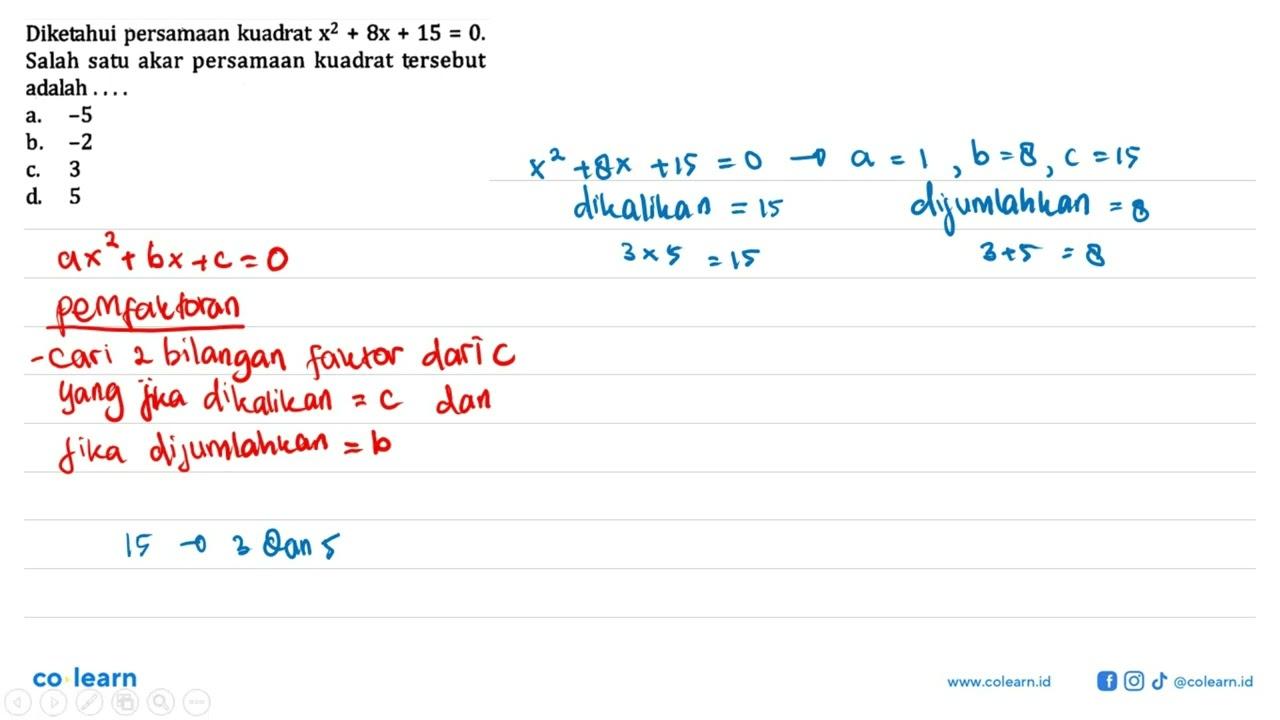 Diketahui persamaan kuadrat x² + 8x + 15 = 0.
Salah satu akar persamaan kuadrat tersebut
adalah . . . .
a. -5
b. -2
c. 3
d. 5
x² + 8x + 15 = 0 → a = 1 , b = 8 , c = 15
dikalikan = 15 dijumlahkan = 8
3 × 5 = 15 3 + 5 = 8
ax² + bx + c = 0
pemfaktoran
- cari 2 bilangan faktor dari c
yang jika dikalikan = c dan
jika dijumlahkan = b
15 → 3 dan 5
co learn
www.colearn.id
@colearn.id